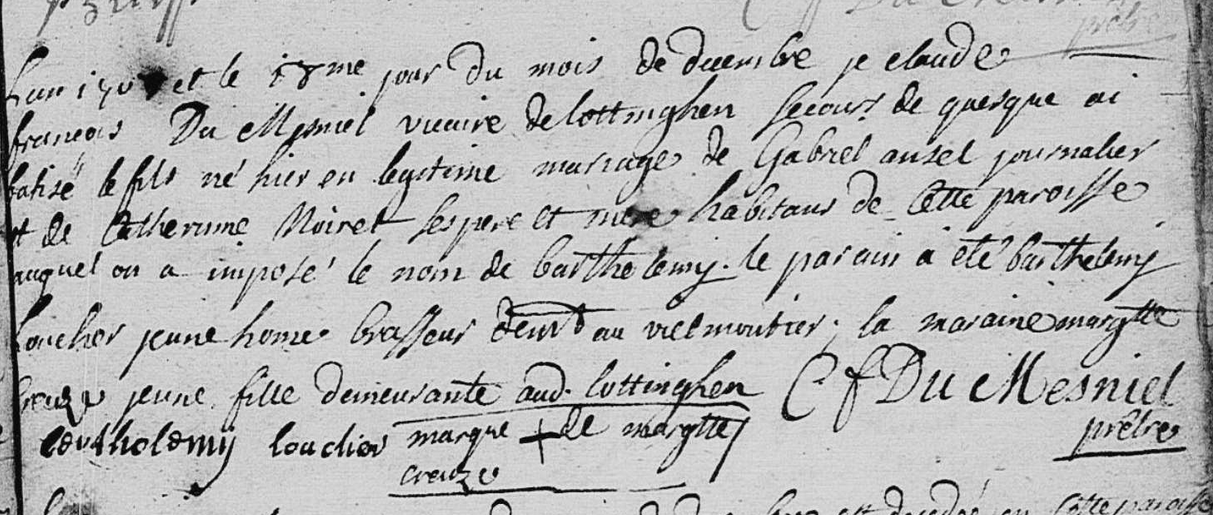 prêtre
L'an 170 et le 18me jour du mois de decembre je claude
françois Du Mesniel vicaire de lottinghen secours de quesque ai
batisé le fils né hier en legitime mariage de Gabriel ansel journalier
et de Catherinne Noiret ses pere et mere habitans de Cette paroisse
auquel on a imposé le nom de barthelemy. le parain a eté barthelemy
loucher jeune home brasseur demrt au vielmoutier; la maraine margtte
creuze jeune fille demeurante aud. lottinghen C f Du Mesniel
bertholemy louchier marque + de margtte prêtre
creuze
est decedée en Cette paroisse